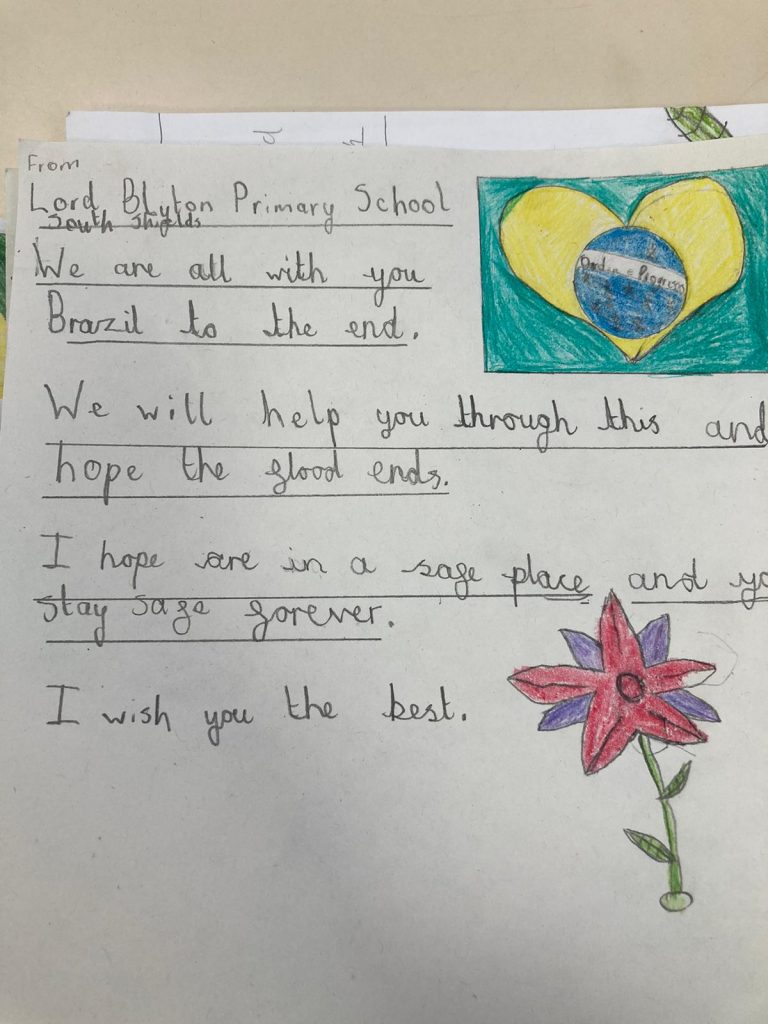 From
Lord Blyton Primary School
South Shields
We are all with you
Brazil to the end.
We will help you through this and
hope the flood ends.
I hope are in a safe place and yo
stay safe forever.
I wish you the best.